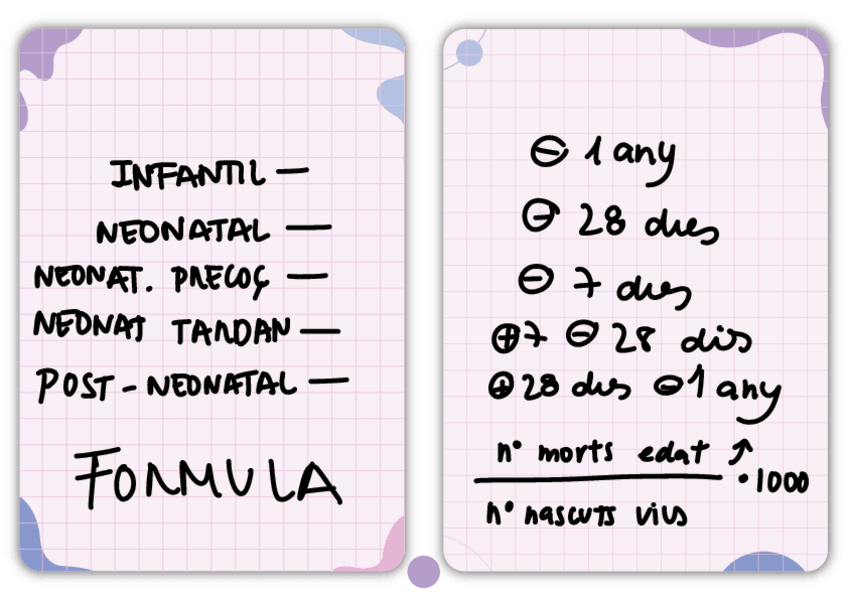 INFANTIL —
NEONATAL —
NEONAT. PRECOÇ —
NEONAT TARDAN —
POST-NEONATAL —
FORMULA
⊖ 1 any
⊖ 28 dies
⊖ 7 dies
⊕7 ⊖ 28 dies
⊕28 dies ⊖1 any
nº morts edat ↗
· 1000
nº nascuts vius